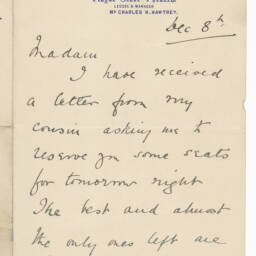 LESSEE & MANAGER
Mr CHARLES H. HAWTREY.
Dec 8th
Madam
I have received
a letter from my
cousin asking me to
reserve you some seats
for tomorrow night
The best and almost
the only ones left are